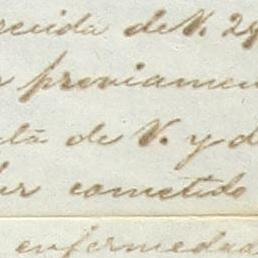 recida de V. 29
r previamen
ta de V. y d
ber cometido
enfermedad